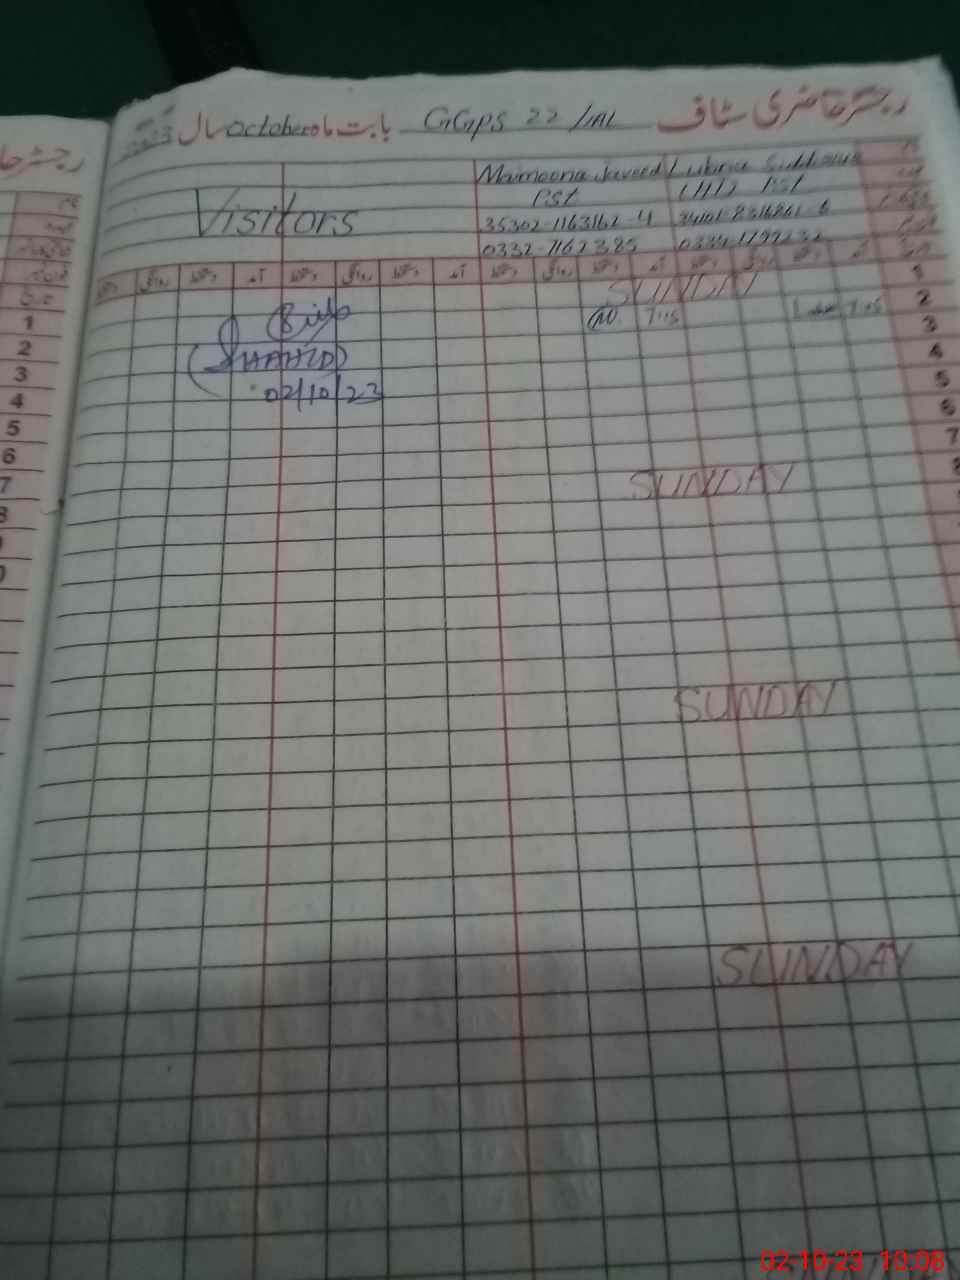 رجسٹر حاضری سٹاف GGPS 22/ML بابت ماہ October سال 2023
Maimoona Javeed Lubna Siddique
PST PST
35302-1163162-4 34101-8316861-6
0332-7162385
Visitors
آمد دستخط روانگی آمد دستخط روانگی آمد دستخط روانگی آمد دستخط روانگی
SUNDAY
7:15 7:15
(SHAHID)
02/10/23
SUNDAY
SUNDAY
SUNDAY
1
2
3
4
5
6
7
8
رجسٹر حا
1
2
3
4
5
6
7
8
02-10-23 10:08